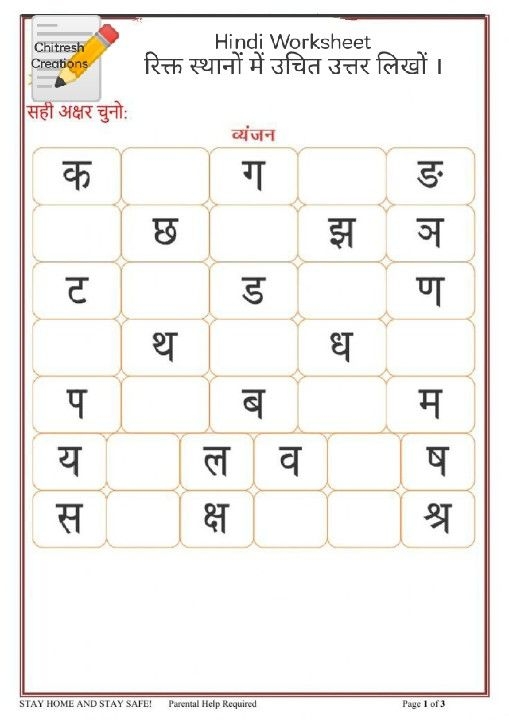 Chitresh
Creations
Hindi Worksheet
रिक्त स्थानों में उचित उत्तर लिखों ।
सही अक्षर चुनो:
व्यंजन
क ग ङ
छ झ ञ
ट ड ण
थ ध
प ब म
य ल व ष
स क्ष श्र
STAY HOME AND STAY SAFE! Parental Help Required Page 1 of 3